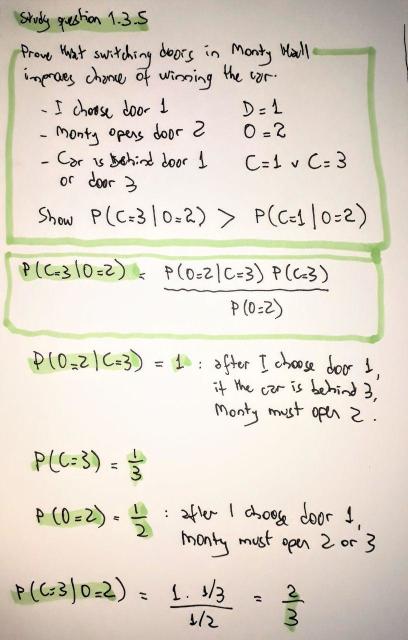 Study question 1.3.5
Prove that switching doors in Monty Hall
improves chance of winning the car.
- I choose door 1 D=1
- Monty opens door 2 O=2
- Car is behind door 1 C=1 ∨ C=3
or door 3
Show P(C=3|O=2) > P(C=1|O=2)
P(C=3|O=2) = P(O=2|C=3) P(C=3)
P(O=2)
P(O=2|C=3) = 1 : after I choose door 1,
if the car is behind 3,
Monty must open 2.
P(C=3) = 1/3
P(O=2) = 1/2 : after I choose door 1,
Monty must open 2 or 3
P(C=3|O=2) = 1 · 1/3 = 2/3
1/2